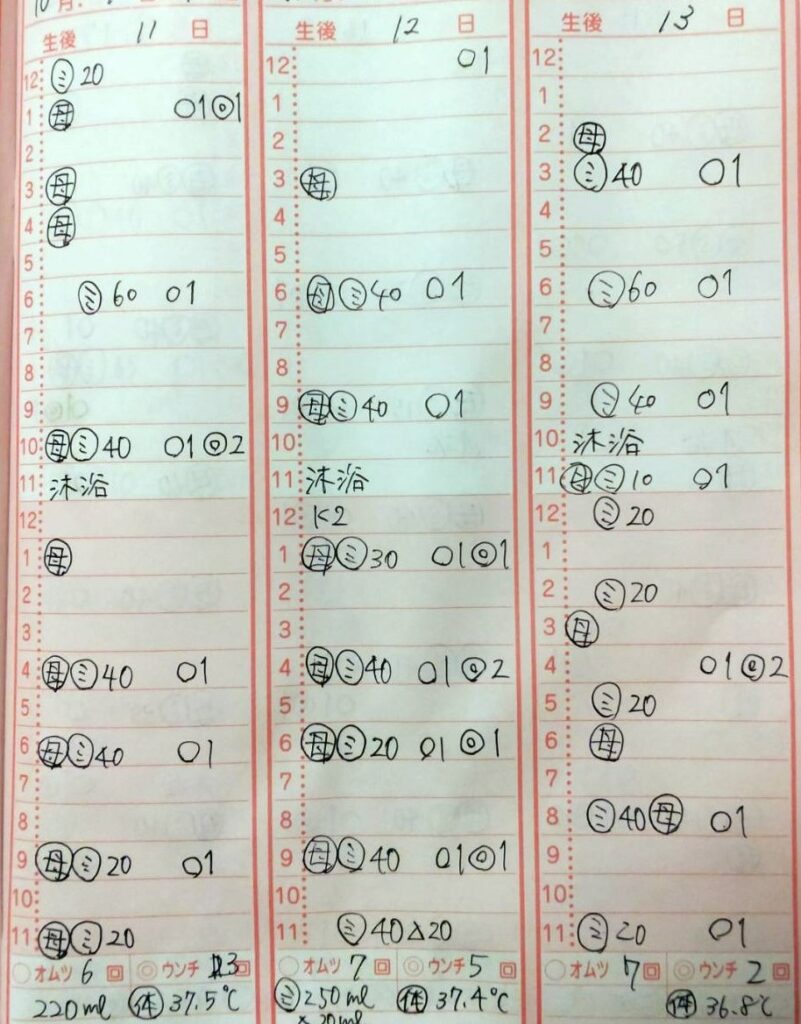 10月
生後 11 日
12 ㋯20
1 (母) ○1◎1
2
3 (母)
4 (母)
5
6 ㋯60 ○1
7
8
9
10 (母)㋯40 ○1◎2
11 沐浴
12
1 (母)
2
3
4 (母)㋯40 ○1
5
6 (母)㋯40 ○1
7
8
9 (母)㋯20 ○1
10
11 (母)㋯20
○オムツ 6 回 ◎ウンチ 3 回
220ml (体)37.5℃
生後 12 日
12 ○1
1
2
3 (母)
4
5
6 (母)㋯40 ○1
7
8
9 (母)㋯40 ○1
10
11 沐浴
12 K2
1 (母)㋯30 ○1◎1
2
3
4 (母)㋯40 ○1◎2
5
6 (母)㋯20 ○1◎1
7
8
9 (母)㋯40 ○1◎1
10
11 ㋯40△20
○オムツ 7 回 ◎ウンチ 5 回
㋯250ml (体)37.4℃
生後 13 日
12
1
2 (母)
3 ㋯40 ○1
4
5
6 ㋯60 ○1
7
8
9 ㋯40 ○1
10 沐浴
11 (母)㋯10 ○1
12 ㋯20
1
2 ㋯20
3 (母)
4 ○1◎2
5 ㋯20
6 (母)
7
8 ㋯40(母) ○1
9
10
11 ㋯20 ○1
○オムツ 7 回 ◎ウンチ 2 回
(体)36.8℃